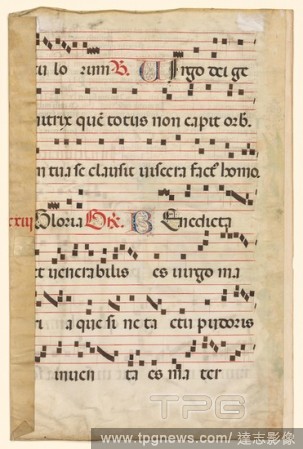 tu lo rum ℟. Uirgo dei ge
nitrix quē totus non capit orb.
in tua se clausit uiscera facē homo.
xxiij Gloria Of. Benedicta
et uenerabilis es uirgo ma
ri a que si ne ta ctu pudoris
inuen ta es ma ter
TPG
www.tpgnews.com / 達志影像